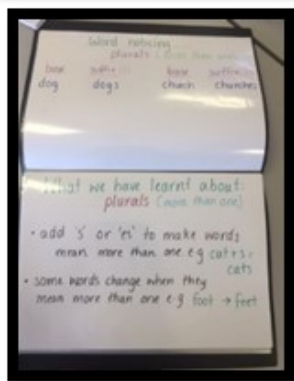 Word noticing
plurals (more than one)
base suffix base suffix
dog dogs church churches
What we have learnt about:
plurals (more than one)
• add 's' or 'es' to make words
mean more than one e.g cat+s=
cats
• some words change when they
mean more than one e.g foot → feet